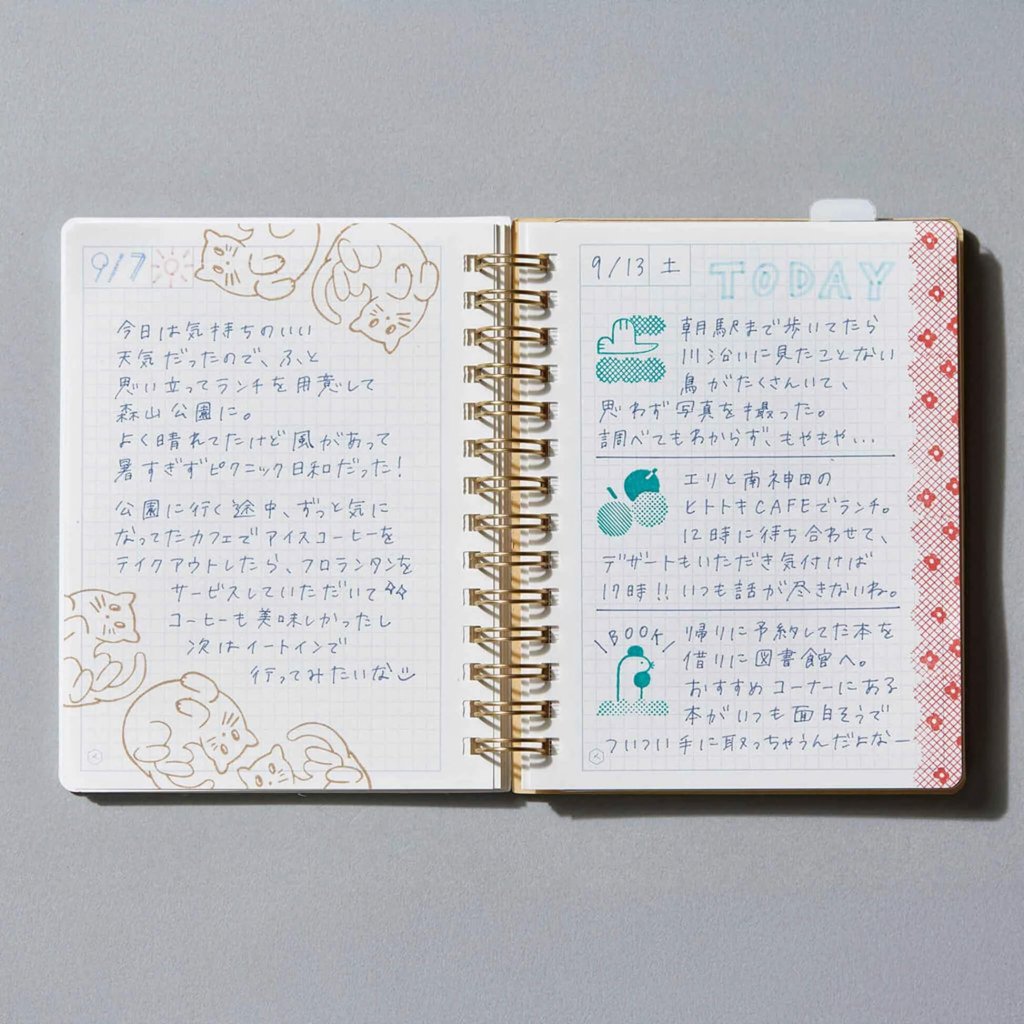 9/7
今日は気持ちのいい
天気だったので、ふと
思い立ってランチを用意して
森山公園に。
よく晴れてたけど風があって
暑すぎずピクニック日和だった!
公園に行く途中、ずっと気に
なってたカフェでアイスコーヒーを
テイクアウトしたら、フロランタンを
サービスしていただいて
コーヒーも美味しかったし
次はイートインで
行ってみたいな
9/13 土
TODAY
朝駅まで歩いてたら
川沿いに見たことない
鳥がたくさんいて、
思わず写真を撮った。
調べてもわからず、もやもや...
エリと南神田の
ヒトトキCAFEでランチ。
12時に待ち合わせて、
デザートもいただき気付けば
17時!!いつも話が尽きないね。
\BOOK/
帰りに予約してた本を
借りに図書館へ。
おすすめコーナーにある
本がいつも面白そうで
ついつい手に取っちゃうんだよなー